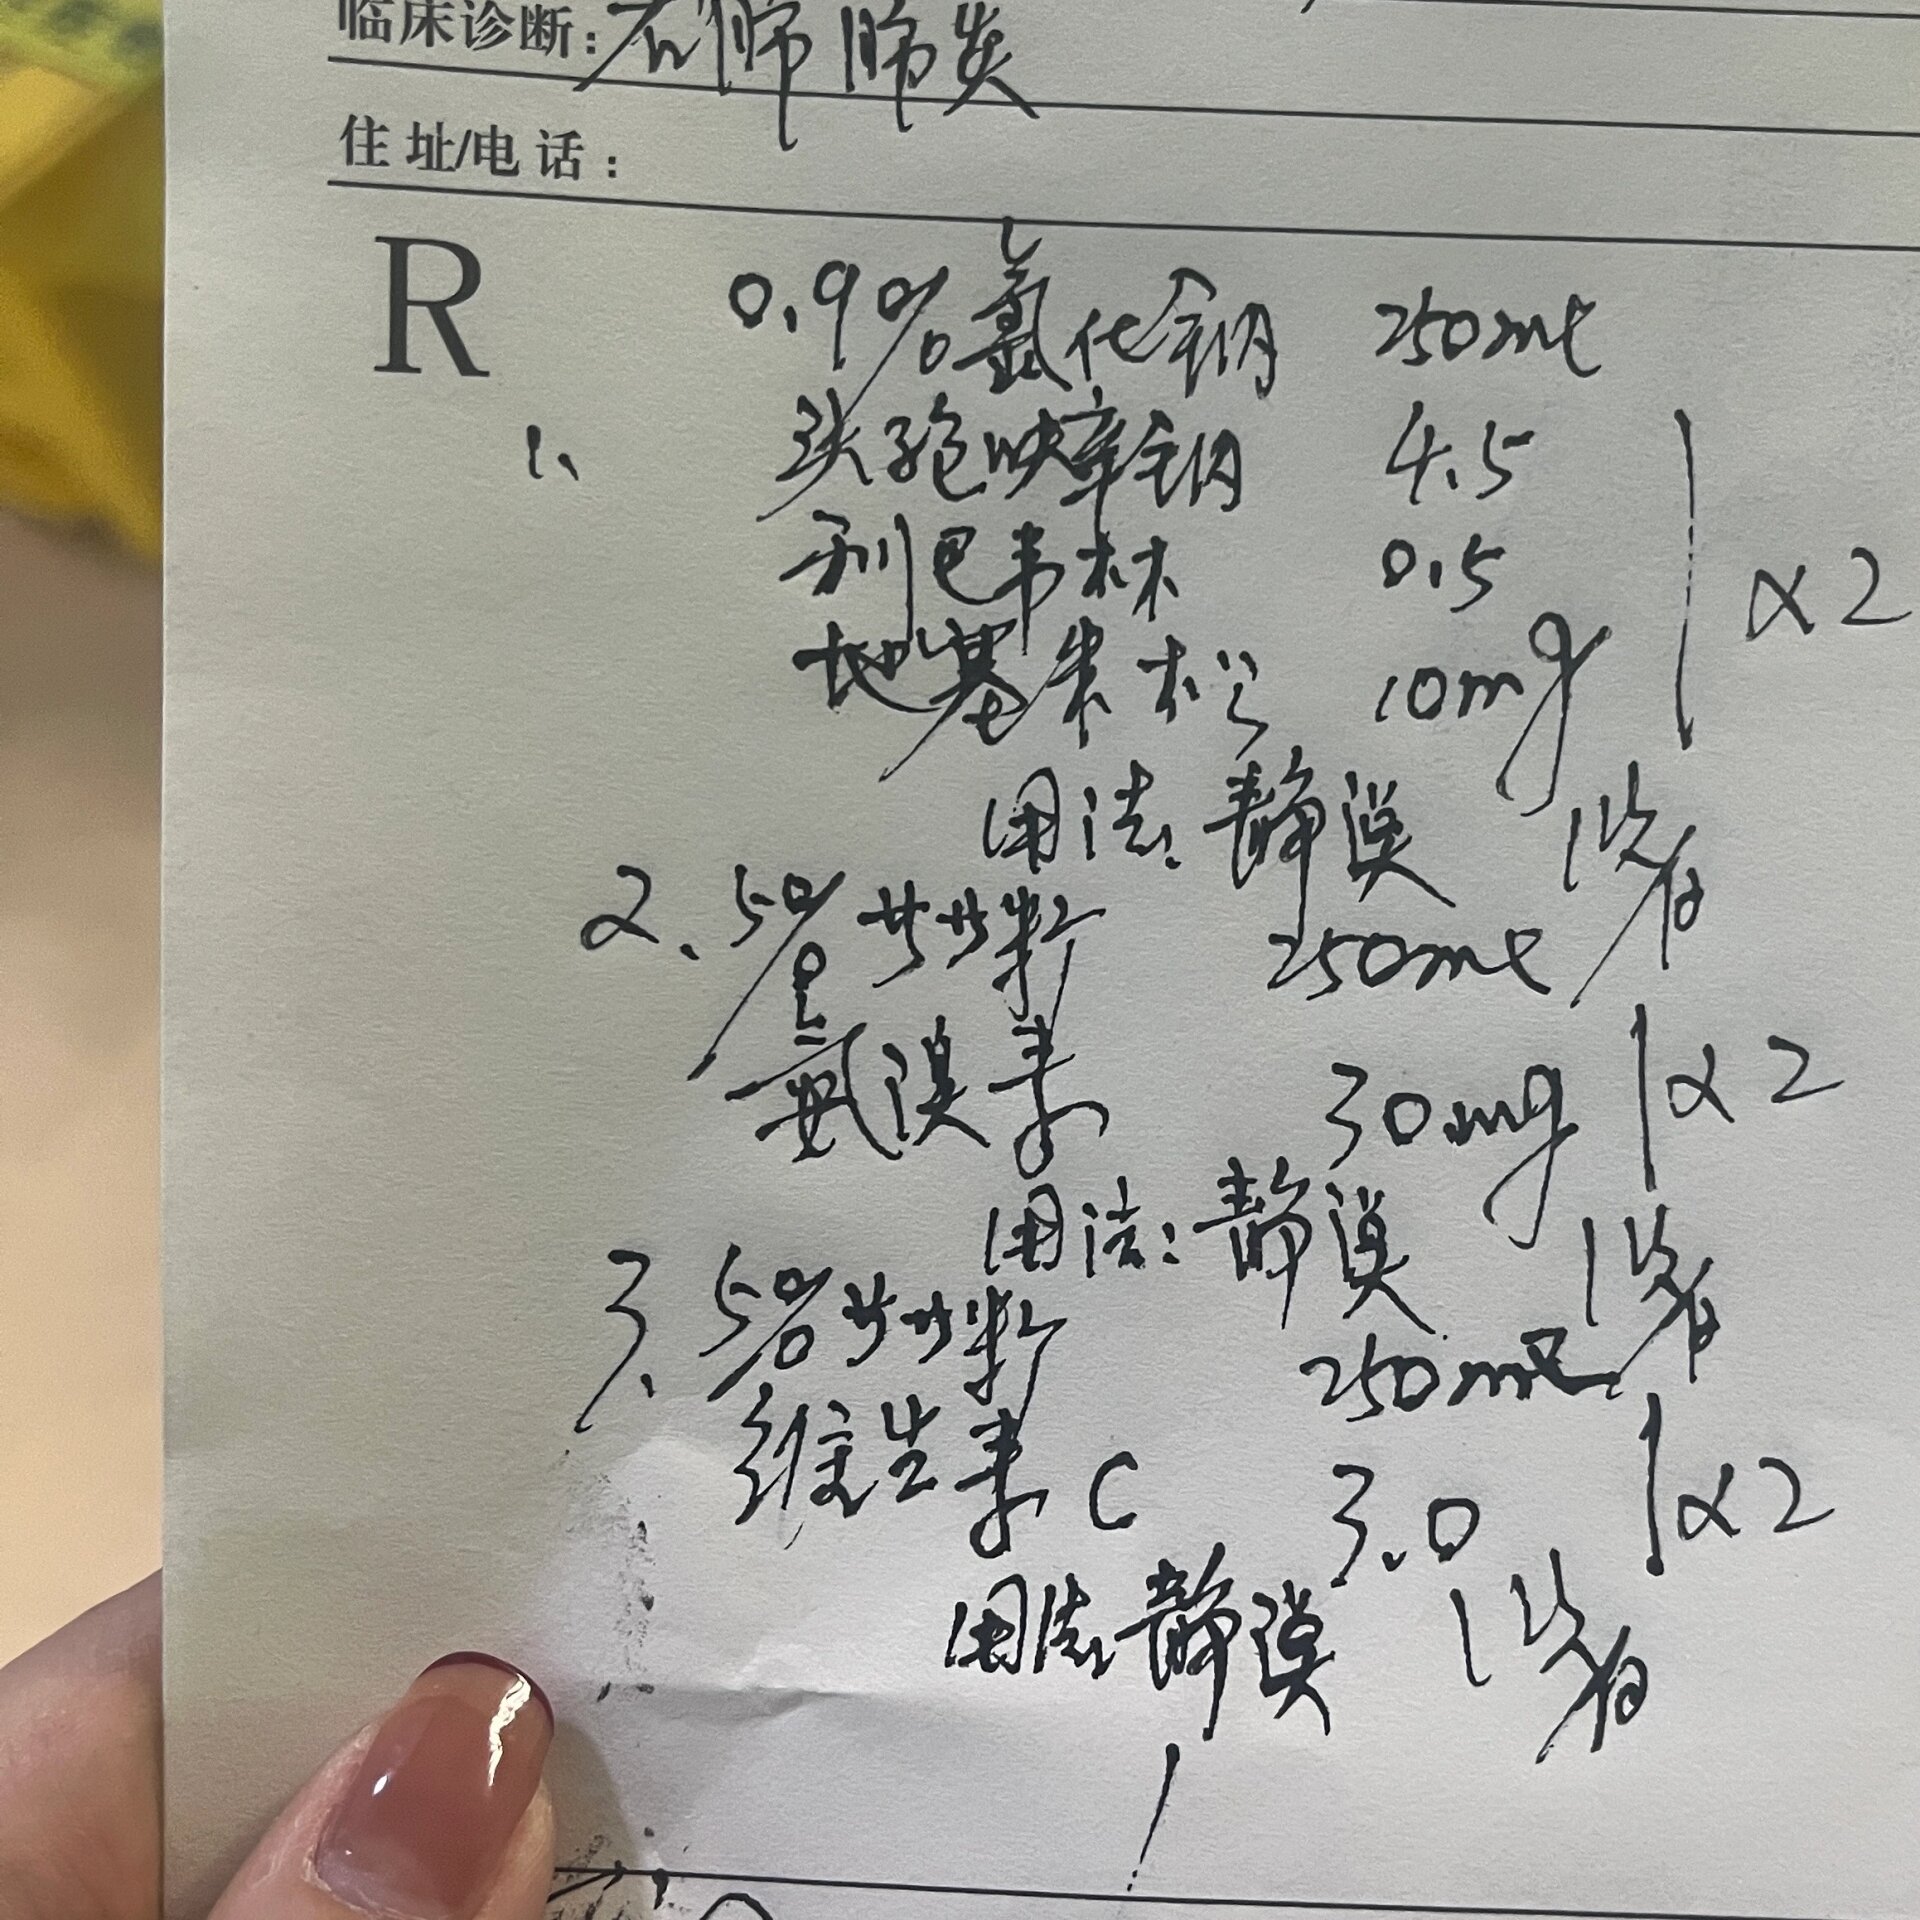 临床诊断：右肺肺炎
住 址/电 话：
R
0.9%氯化钠 250ml
1、头孢呋辛钠 4.5
利巴韦林 0.5 ×2
地塞米松 10mg
用法：静滴 1次/日
2.5%葡萄糖 250ml
氨溴索 30mg ×2
用法：静滴 1次/日
3.5%葡萄糖 250ml
维生素C 3.0 ×2
用法：静滴 1次/日